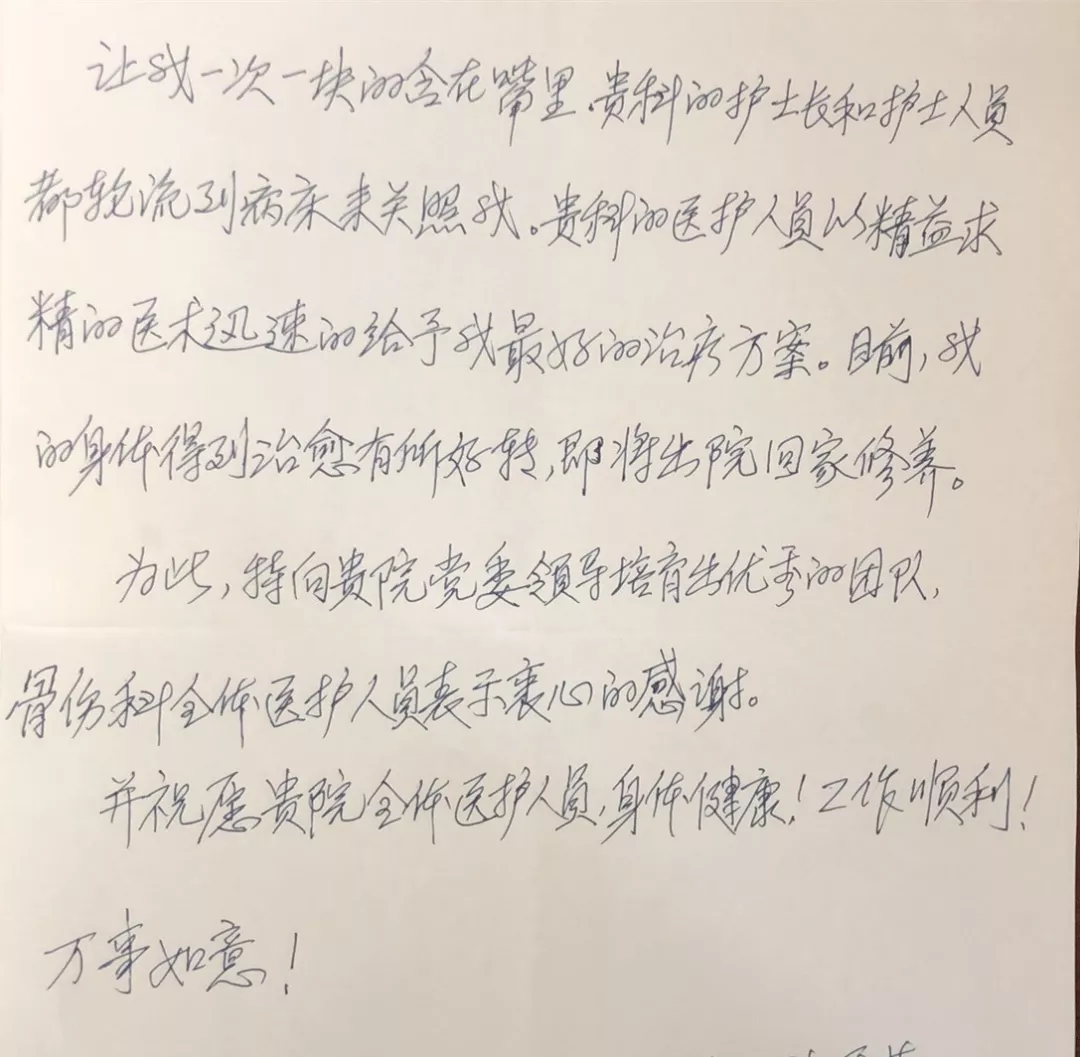 让我一次一块的含在嘴里.贵科的护士长和护士人员
都轮流到病床来关照我。贵科的医护人员以精益求
精的医术迅速的给予我最好的治疗方案。目前,我
的身体得到治愈有所好转,即将出院回家修养。
为此,特向贵院党委领导培育出优秀的团队,
骨伤科全体医护人员表示衷心的感谢。
并祝愿贵院全体医护人员,身体健康!工作顺利!
万事如意!